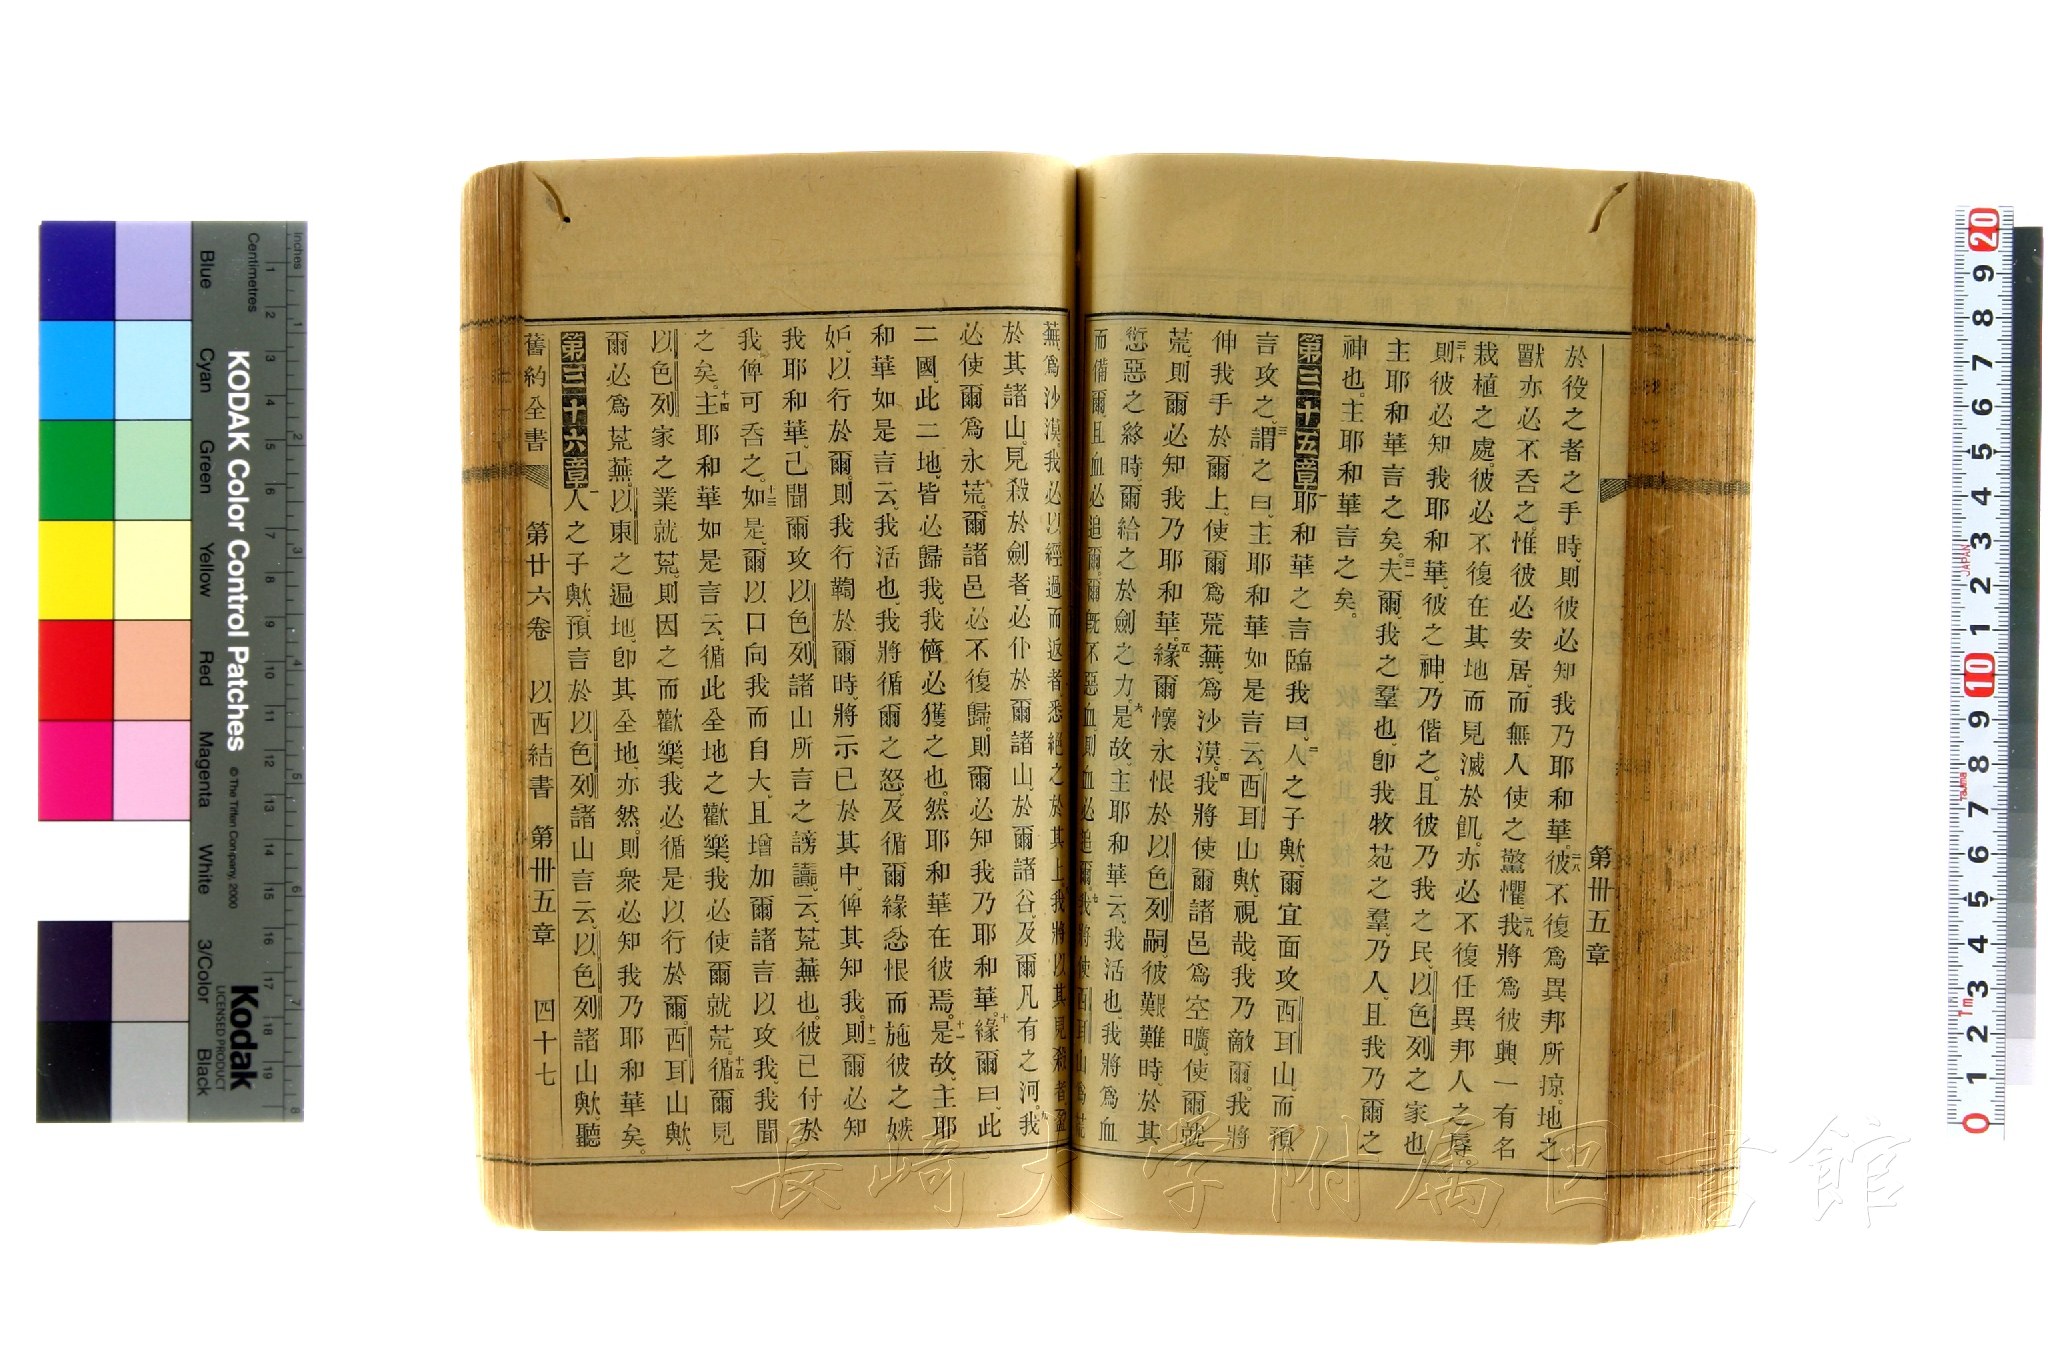 第卅五章
於役之者之手時、則彼必知我乃耶和華。二八彼不復爲異邦所掠。地之
獸亦必不吞之。惟彼必安居、而無人使之驚懼。二九我將爲彼興一有名
栽植之處。彼必不復在其地而見滅於飢。亦必不復任異邦人之辱。
三十則彼必知我耶和華、彼之神、乃偕之。且彼乃我之民、以色列之家也、
主耶和華言之矣。三一夫爾、我之羣也、卽我牧苑之羣、乃人、且我乃爾之
神也。主耶和華言之矣。
第三十五章一耶和華之言臨我曰、二人之子歟、爾宜面攻西耳山、而預
言攻之、三謂之曰、主耶和華如是言云、西耳山歟、視哉、我乃敵爾。我將
伸我手於爾上、使爾爲荒蕪、爲沙漠。四我將使爾諸邑爲空曠。使爾就
荒、則爾必知我乃耶和華。五緣爾懷永恨於以色列嗣。彼艱難時、於其
愆惡之終時、爾給之於劍之力。六是故、主耶和華云、我活也、我將爲血
而備爾、且血必追爾。爾旣不惡血、則血必追爾。七我將使西耳山爲荒
蕪爲沙漠。我必以經過而返者、悉絕之於其上。八我將以其見殺者盈
於其諸山。見殺於劍者、必仆於爾諸山、於爾諸谷、及爾凡有之河。九我
必使爾爲永荒。爾諸邑必不復歸。則爾必知我乃耶和華。十緣爾曰、此
二國、此二地、皆必歸我、我儕必獲之也。然耶和華在彼焉。十一是故、主耶
和華如是言云、我活也、我將循爾之怒、及循爾緣忿恨而施彼之嫉
妒、以行於爾。則我行鞫於爾時、將示已於其中、俾其知我。十二則爾必知
我耶和華、已聞爾攻以色列諸山所言之謗讟、云、荒蕪也。彼已付於
我、俾可吞之。十三如是、爾以口向我而自大、且增加爾諸言以攻我、我聞
之矣。十四主耶和華如是言云、循此全地之歡樂、我必使爾就荒。十五循爾見
以色列家之業就荒、則因之而歡樂、我必循是以行於爾。西耳山歟、
爾必爲荒蕪。以東之遍地、卽其全地、亦然。則衆必知我乃耶和華矣。
第三十六章一人之子歟、預言於以色列諸山言云、以色列諸山歟、聽
舊約全書 第廿六卷 以西結書 第卅五章 四十七
KODAK Color Control Patches
© The Tiffen Company, 2000
Kodak
LICENSED PRODUCT
Inches
Centimetres
Blue
Cyan
Green
Yellow
Red
Magenta
White
3/Color
Black
JAPAN
Tajima
1m
長崎大学附属図書館